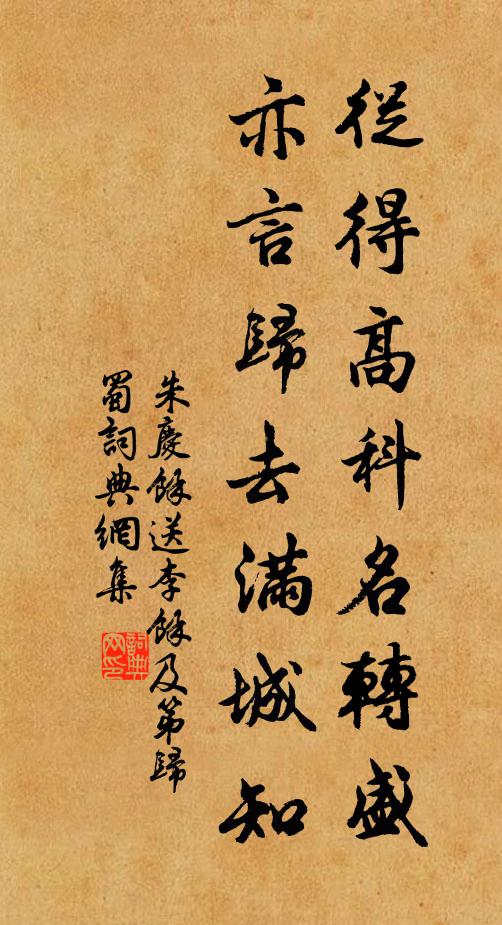 從得高科名轉盛
亦言歸去滿城知
朱慶餘送李餘及第歸
蜀詞典網集
詞典网印